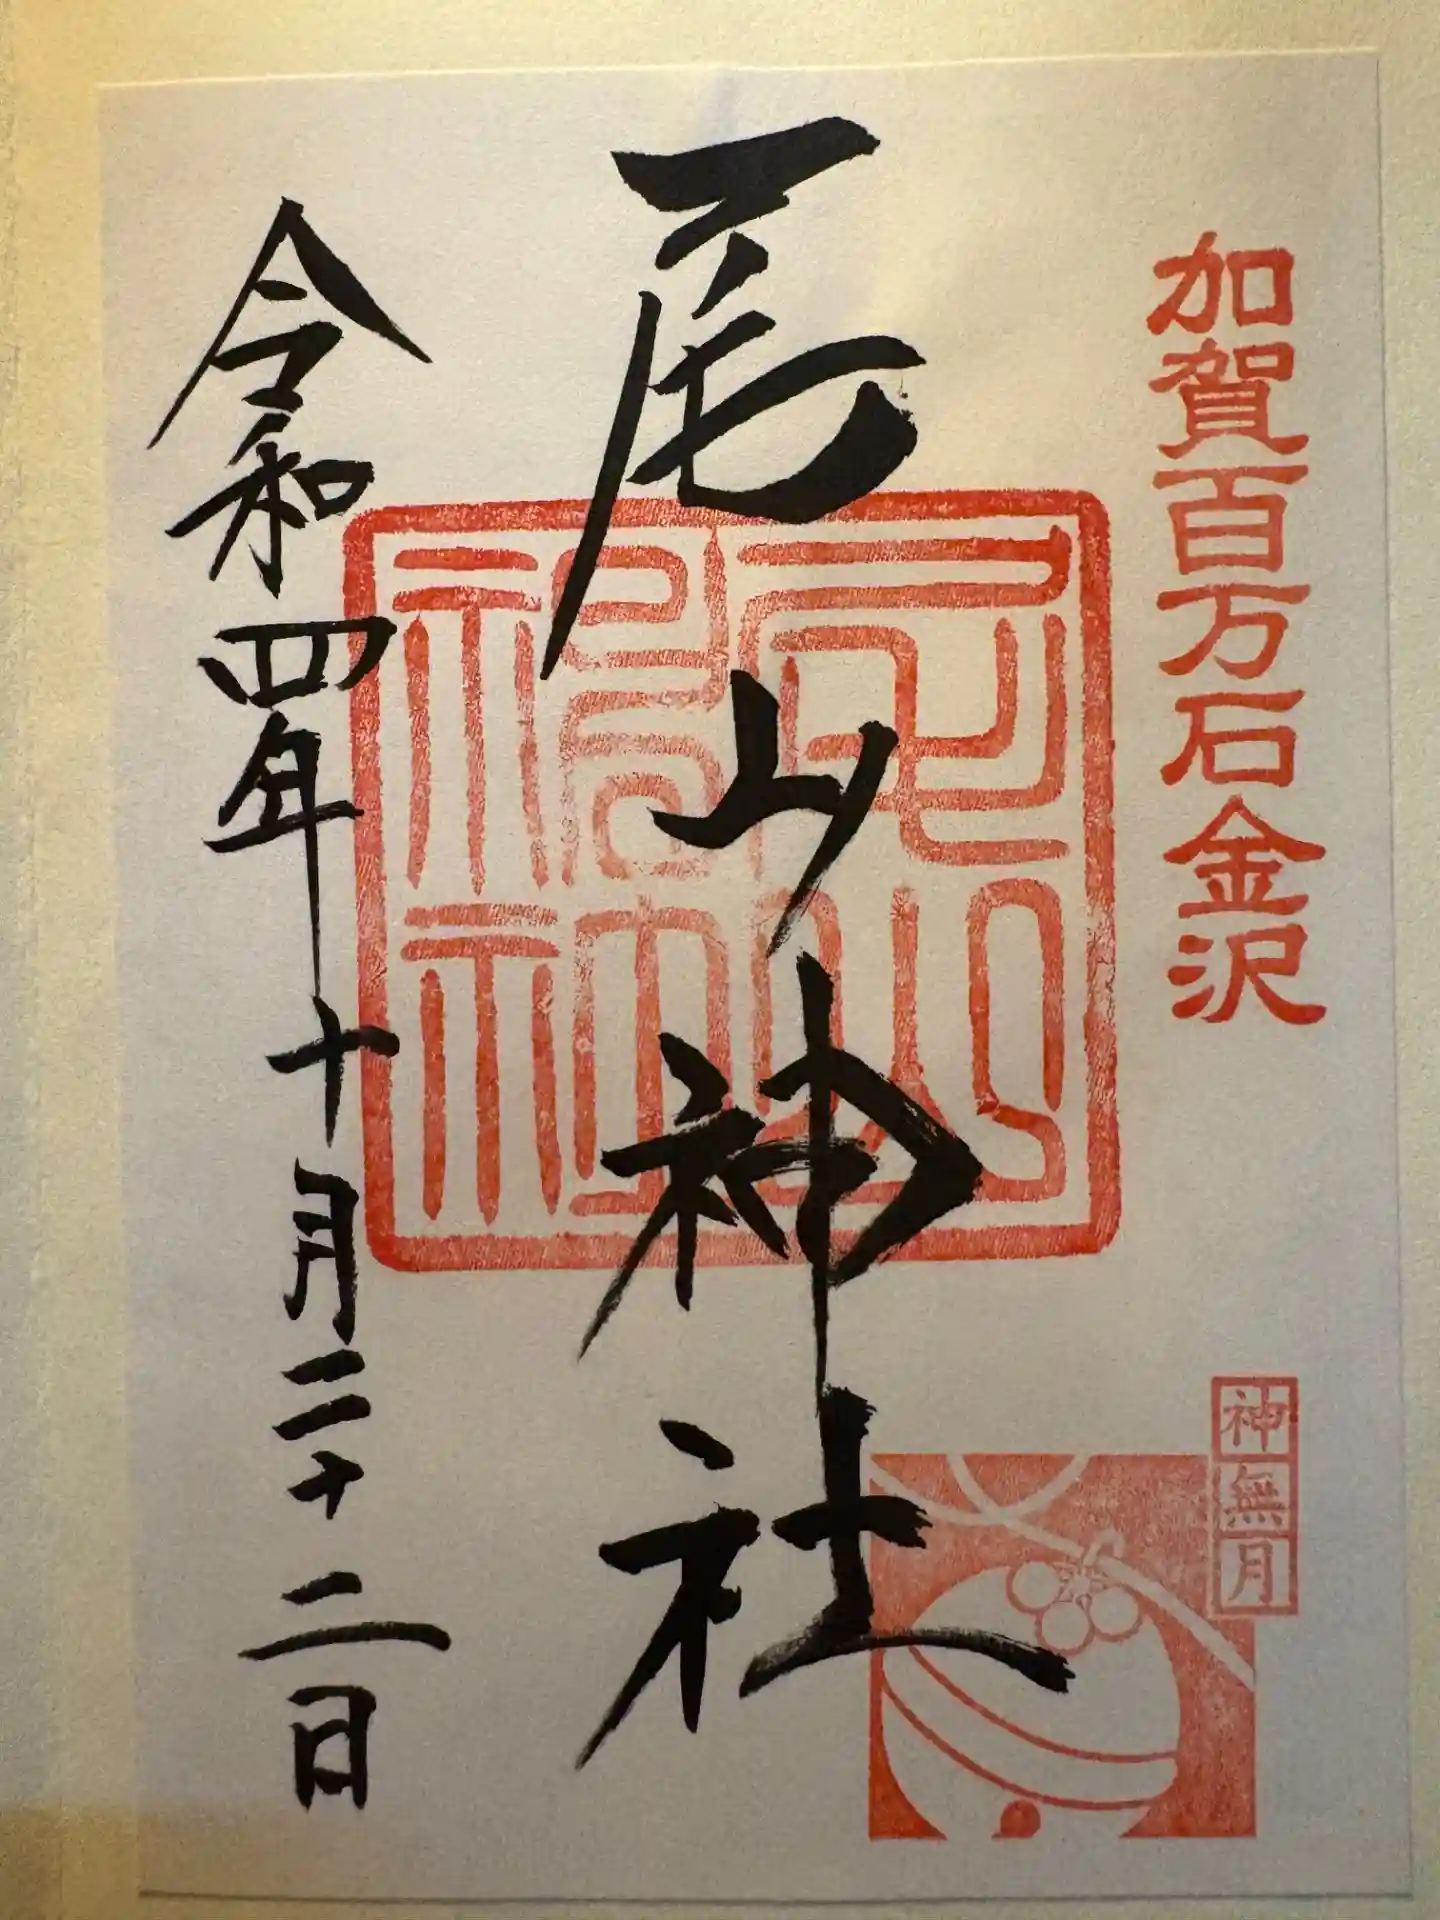 加賀百万石金沢
神無月
尾山神社
令和四年十月二十二日